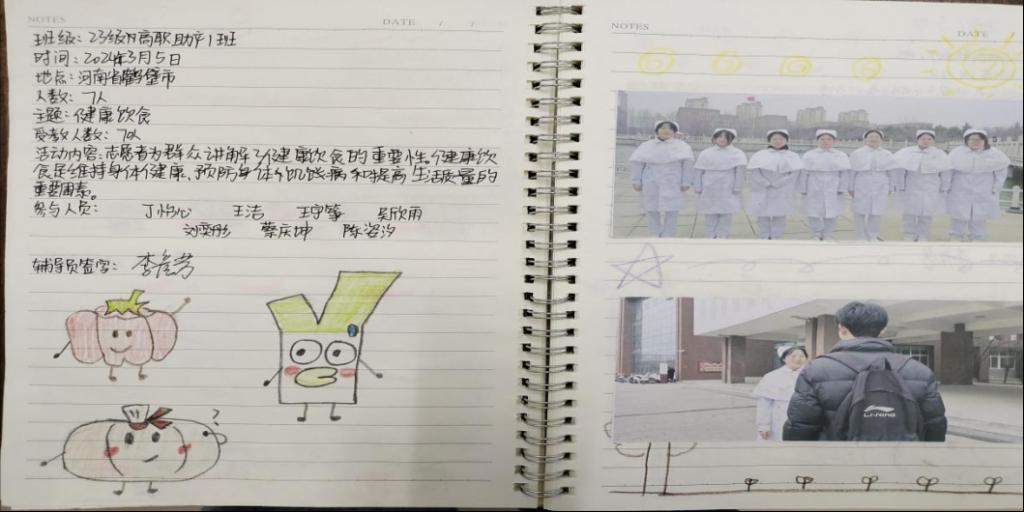 NOTES
DATE / /
班级：23级N高职助产1班
时间：2024年3月5日
地点：河南省鹤壁市
人数：7人
主题：健康饮食
受教人数：70人
活动内容：志愿者为群众讲解了健康饮食的重要性。健康饮
食是维持身体健康、预防身体饥饿病和提高生活质量的
重要因素。
参与人员： 丁怡心 王洁 吴欣雨
蔡庆坤 陈姿汐
辅导员签字：
?
NOTES
DATE
LI-NING